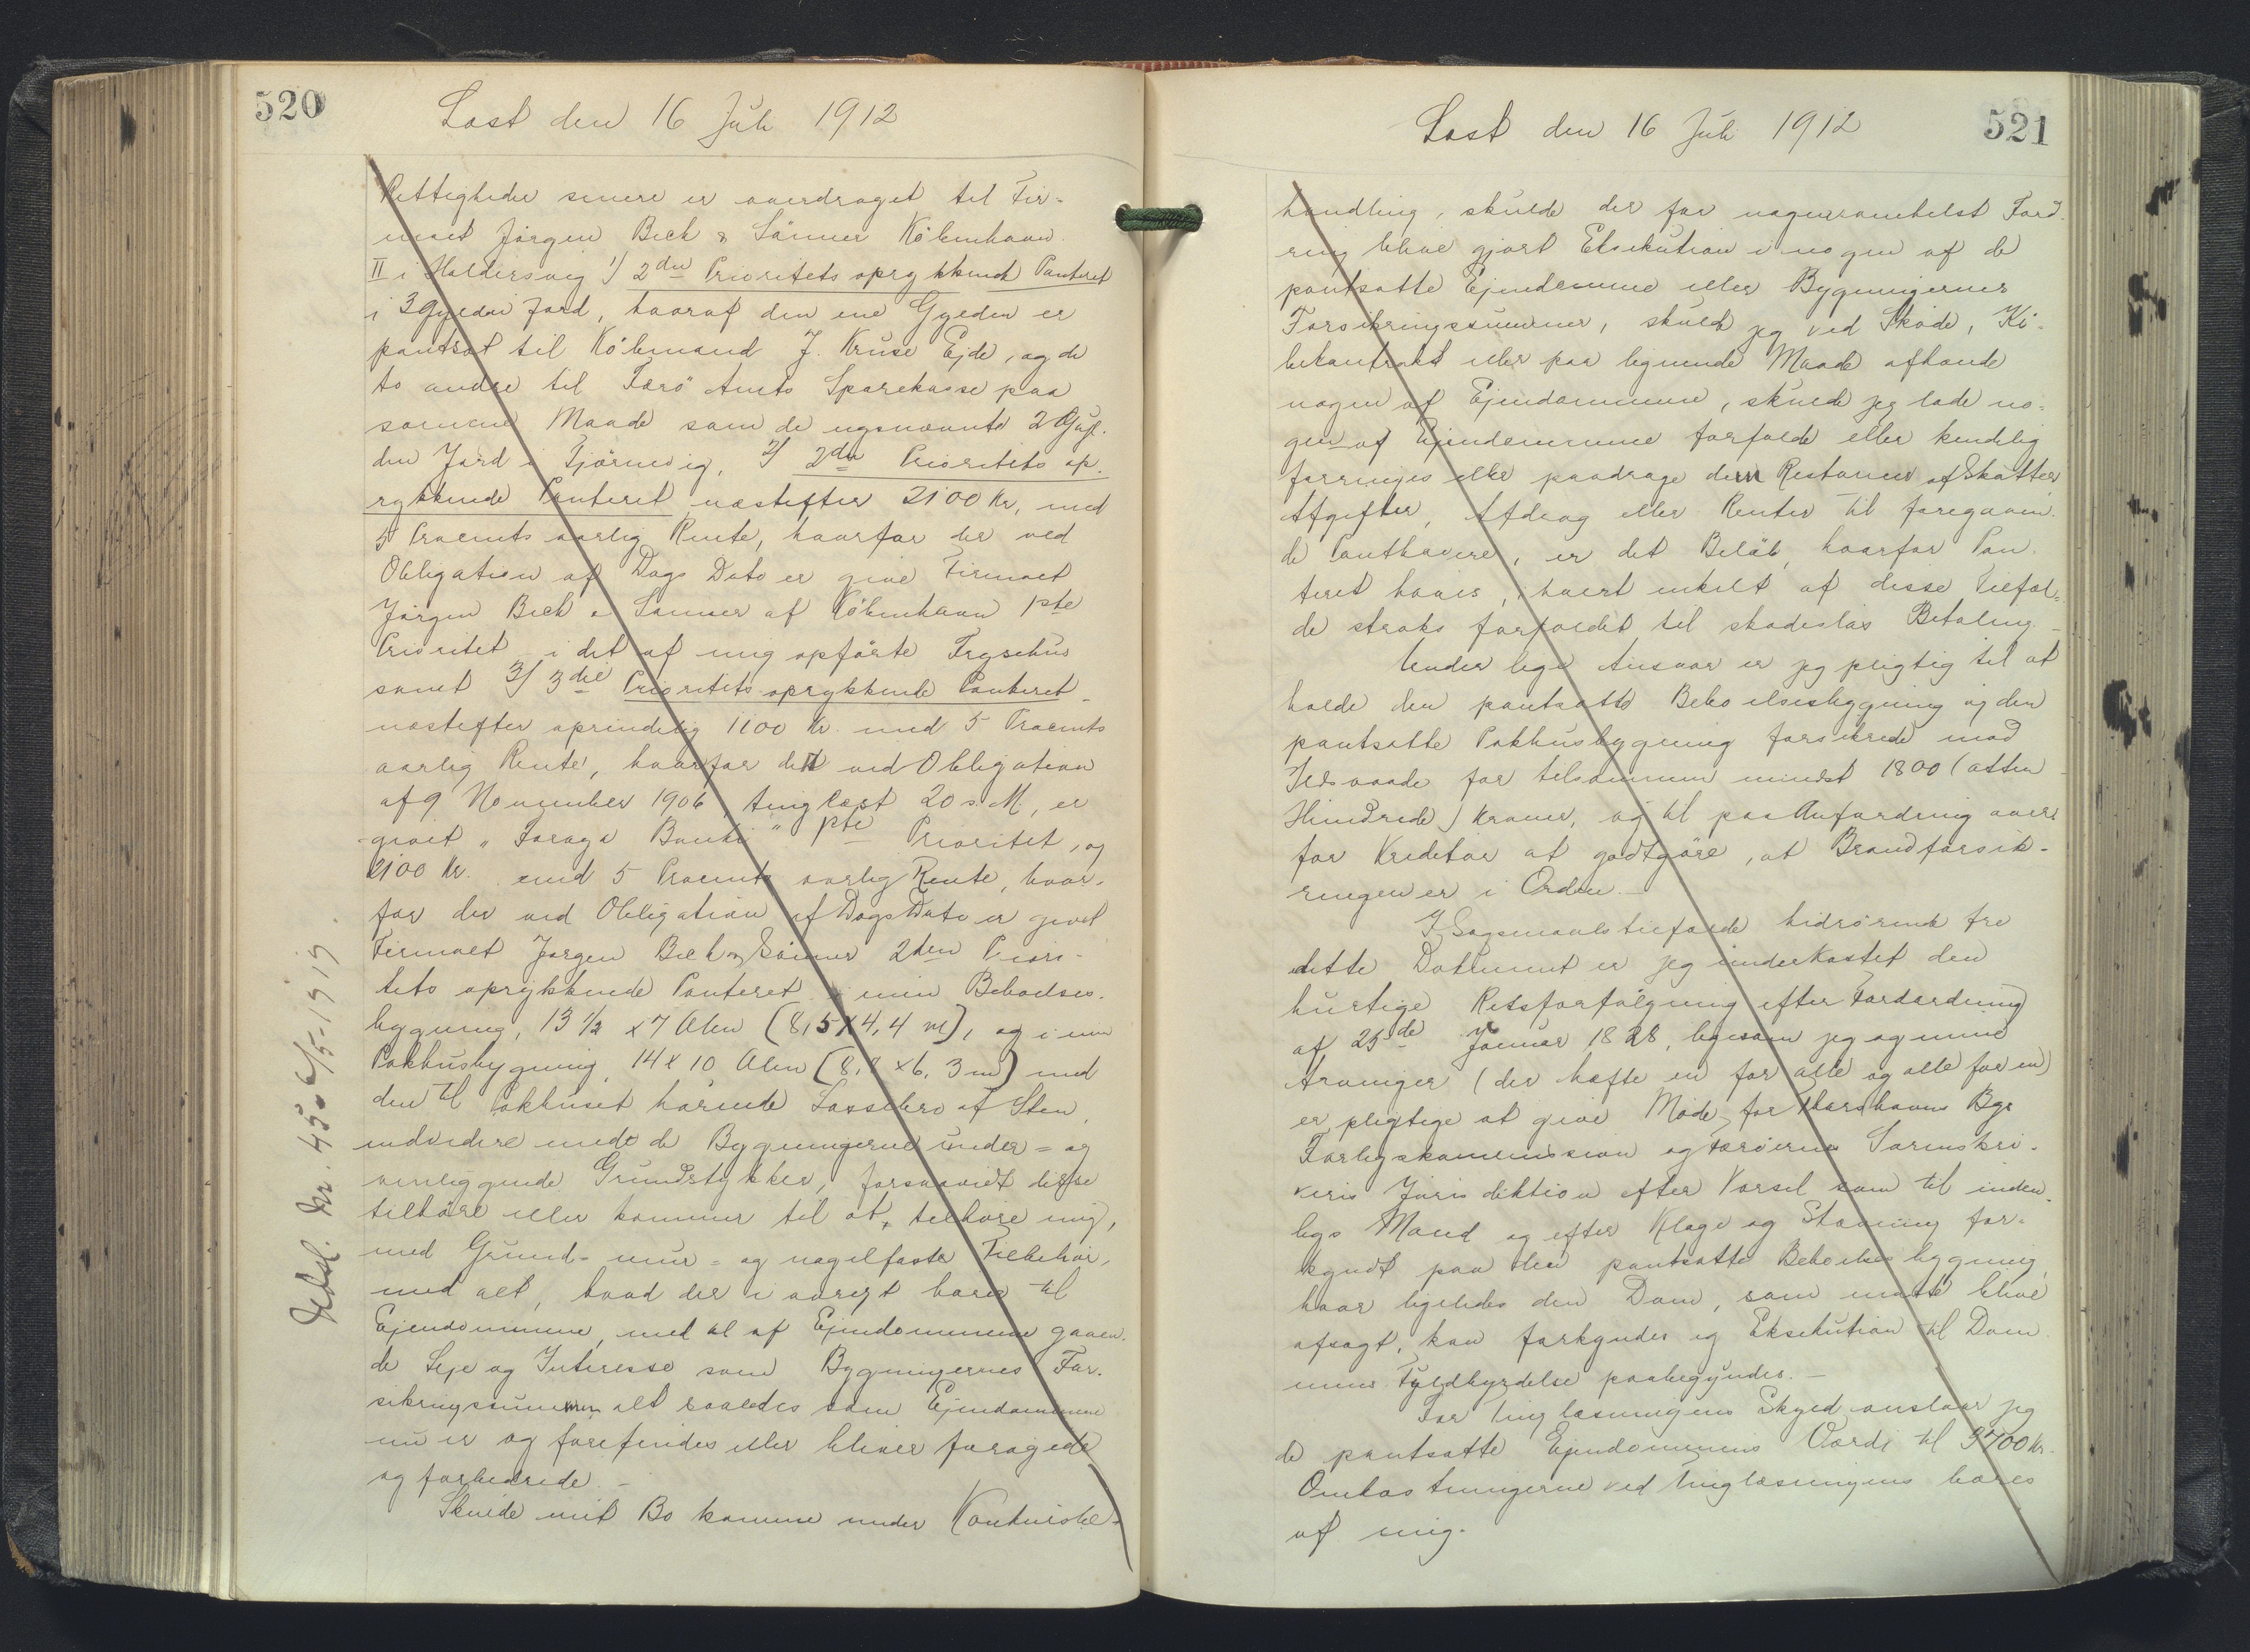 520
Læst den 16 Juli 1912
Rettigheder senere er overdraget til Fir-
maet Jørgen Bech & Sönner Köbenhavn.
II i Haldersvig 1/ 2den Prioritets oprykkende Panteret
i 3 Gylden Jord, hvoraf den ene Gylden er
pantsat til Köbmand J. Kruse Ejde, og de
to andre til Færö Amts Sparekasse paa
samme Maade som de ugsnævnte 2 Gyl-
den Jord i Tjörnevig, 2/ 2den Prioritets op-
rykkende Panteret næstefter 2100 Kr, med
5 Procents aarlig Rente, hvorfor der ved
Obligation af Dags Dato er give Firmaet
Jörgen Bech & Sönner af Köbenhavn 1ste
Prioritet i det af mig opförte Frysehus
samt 3/ 3die Prioritets oprykkende Panteret
næstefter oprindelig 1100 Kr. med 5 Procents
aarlig Rente, hvorfor der ved Obligation
af 9 November 1906, tinglæst 20 s. M., er
givet "Foroya Banki" 1ste Prioritet, og
2100 Kr. med 5 Procents aarlig Rente, hvor-
for der ved Obligation af Dags Dato er givet
Firmaet Jørgen Bech og Sönner 2den Priori-
tets oprykkende Panteret i min Beboelses-
bygning, 13 1/2 x 7 Alen (8,5 x 4,4 m), og i min
Pakhusbygning, 14 x 10 Alen (8,8 x 6,3 m) med
den til Pakhuset hörende Lossebro af Sten,
indvidere med de Bygningerne under- og
omliggende Grundstykker, forsaavidt disse
tilhöre eller kommer til at tilhöre mig,
med Grund- mur- og nagelfaste Tilbehör,
med alt, hvad der i övrigt hörer til
Ejendommene, med al af Ejendommene gaaen-
de Leje og Interesse som Bygningernes For-
sikringssummer alt saaledes som Ejendommene
nu er og forefindes eller bliver forögede
og forbedrede. -
Skulde mit Bo komme under Konkursbe-
Udsl. Nr. 450 6/5-1919.
521
Læst den 16 Juli 1912
handling, skulde der for nogensomhelst Ford-
ring blive gjort Eksekution i nogen af de
pantsatte Ejendomme eller Bygningernes
Forsikringssummer, skulde jeg ved Skøde, Kö-
bekontrakt eller paa lignende Maade afhænde
nogen af Ejendommene, skulde jeg lade no-
gen af Ejendommene forfalde eller kendelig
forringes eller paadrage dem Restancer af Skatter,
Afgifter, Afdrag eller Renter til foregaaen-
de Panthavere, er det Belöb, hvorfor Pan-
teret haves, i hvert enkelt af disse Tilfæl-
de straks forfaldet til skadeslös Betaling. -
Under lige Ansvar er jeg pligtig til at
holde den pantsatte Beboelsesbygning og den
pantsatte Pakhusbygning forsikrede mod
Ildsvaade for tilsammen mindst 1800 (atten
Hundrede) Kroner, og til paa Anfordring over
for Kreditor at godtgöre, at Brandforsik-
ringen er i Orden. -
I Sagsmaalstilfælde hidrörende fra
dette Dokument er jeg underkastet den
hurtige Retsforfölgning efter Forordning
af 25de Januar 1828, ligesom jeg og mine
Arvinger (der hæfte en for alle og alle for en)
er pligtige at give Möde for Thorshavns Bys
Forligskommission og Færöernes Sorenskri-
veris Jurisdiktion efter Varsel som til inden-
bys Mand og efter Klage og Stævning for-
kyndt paa den pantsatte Beboelsesbygning,
hvor ligeledes den Dom, som maatte blive
afsagt, kan forkyndes og Eksekution til Dom-
mens Fyldbyrdelse paabegyndes. -
For Tinglæsningens Skyld anslaar jeg
de pantsatte Ejendommens Værdi til 3700 Kr.
Omkostningerne ved Tinglæsningens bæres
af mig.